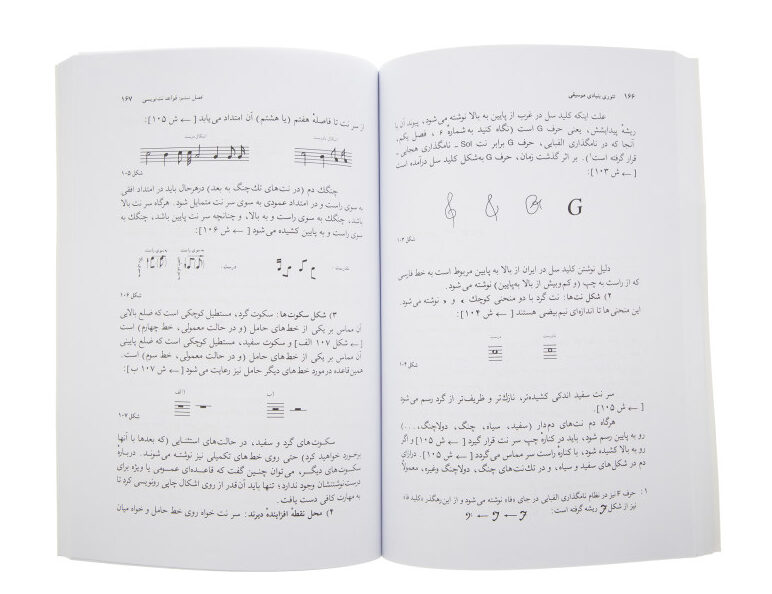 ۱۶۶ تئوری بنیادی موسیقی
علت اینکه کلید سل در غرب از پایین به بالا نوشته می‌شود، پیوند آن با
ریشهٔ پیدایشش، یعنی حرف G است (نگاه کنید به شمارهٔ ۶ ، فصل یکم،
آنجا که در نامگذاری الفبایی، حرف G برابر نت Sol ــ نامگذاری هجایی ــ
قرار گرفته است¹). بر اثر گذشت زمان، حرف G به شکل کلید سل درآمده است
[ ← ش ۱۰۳ ]:
G
شکل ۱۰۳
دلیل نوشتن کلید سل در ایران از بالا به پایین مربوط است به خط فارسی
که از راست به چپ (و کم‌وبیش از بالا به‌پایین) نوشته می‌شود.
۲) شکل نت‌ها: نت گرد با دو منحنی کوچک و نوشته می‌شود.
این منحنی‌ها تا اندازه‌ای نیم‌بیضی هستند [ ← ش ۱۰۴ ]:
نادرست درست
شکل ۱۰۴
سر نت سفید اندکی کشیده‌تر، نازک‌تر و ظریف‌تر از گرد رسم می‌شود
[ ← ش ۱۰۵ ].
هرگاه دم نت‌های دم‌دار (سفید، سیاه، چنگ، دولاچنگ،...)
رو به پایین رسم شود، باید در کنارهٔ چپ سر نت قرار گیرد [ ← ش ۱۰۵ ] و اگر
رو به بالا کشیده شود، با کنارهٔ راست سر مماس می‌گردد [ ← ش ۱۰۵ ]. درازای
دم در شکل‌های سفید و سیاه، و در تک‌نت‌های چنگ، دولاچنگ وغیره، معمولاً
۱ . حرف F نیز در نظام نامگذاری الفبایی در جای «فا» نوشته می‌شود و از این‌رهگذر «کلید فا»
نیز از شکل ریشه گرفته است:
فصل ششم: قواعد نت‌نویسی ۱۶۷
از سر نت تا فاصلهٔ هفتم (یا هشتم) آن امتداد می‌یابد [ ← ش ۱۰۵ ]:
اشکال نادرست اشکال درست
شکل ۱۰۵
چنگک دم (در نت‌های تک‌چنگ به بعد) درهرحال باید در امتداد افقی
به سوی راست و در امتداد عمودی به سوی سر نت متمایل شود. هرگاه سر نت بالا
باشد، چنگک به سوی راست و به بالا، و چنانچه سر نت پایین باشد، چنگک به
سوی راست و به پایین کشیده می‌شود [ ← ش ۱۰۶ ]:
نادرست: درست: به سوی راست به سوی راست
شکل ۱۰۶
۳) شکل سکوت‌ها: سکوت گرد، مستطیل کوچکی است که ضلع بالایی
آن مماس بر یکی از خط‌های حامل (و در حالت معمولی، خط چهارم) است
[ ← شکل ۱۰۷ الف] و سکوت سفید، مستطیل کوچکی است که ضلع پایین
آن مماس بر یکی از خط‌های حامل (و در حالت معمولی، خط سوم) است.
همین قاعده در مورد خط‌های دیگر حامل نیز رعایت می‌شود [ ← ش ۱۰۷ ب ]:
الف) ب)
شکل ۱۰۷
سکوت‌های گرد و سفید، در حالت‌های استثنایی (که بعدها با آنها
برخورد خواهید کرد) حتی روی خط‌های تکمیلی نیز نوشته می‌شوند. دربارهٔ
سکوت‌های دیگر، می‌توان چنین گفت که قاعده‌ای عمومی یا ویژه برای
درست‌نوشتنشان وجود ندارد؛ تنها باید آن‌قدر از روی اشکال چاپی رونویسی کرد تا
به مهارت کافی دست یافت.
۴) محل نقطهٔ افزایندهٔ دیرند: سر نت خواه روی خط حامل و خواه میان